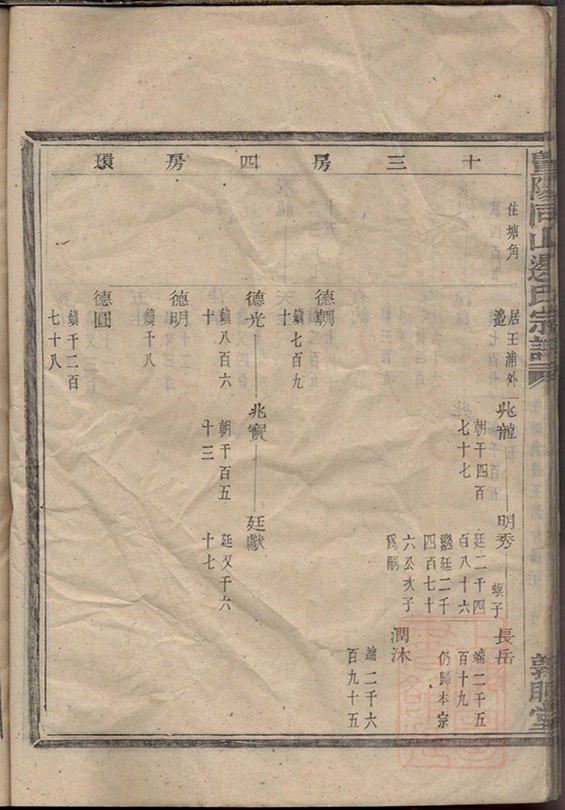 暨陽同山邊氏宗譜
敦睦堂
十三房四房環
住塘角
居王浦外
兆龍
朝千四百
七十七
明秀
廷二千四
百八十六
繼廷二千
四百七十
六公次子
爲嗣
螟子
長岳
端二千五
百十九
仍歸本宗
潤沐
端二千六
百九十五
德朝
鎮七百九
十
德光
鎮八百六
十
兆寶
朝千百五
十三
廷獻
廷又千六
十七
德明
鎮千八
德圓
鎮千二百
七十八